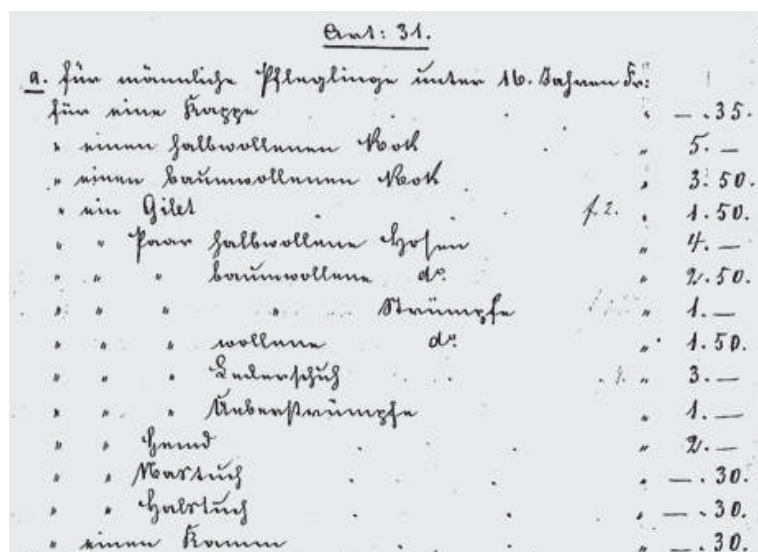 Art: 31.
a. für männliche Pfleglinge unter 16. Jahren Fr:
für eine Kappe . . " — . 35.
" einen halbwollenen Rock . " 5. —
" einen baumwollenen Rock " 3. 50.
" ein Gilet . . f. 2. " 1. 50.
" " Paar halbwollene Hosen " 4. —
" " " baumwollene do. " 2. 50.
" " " " Strümpfe " 1. —
" " " wollene do. " 1. 50.
" " " Lederschuh . . . " 3. —
" " " Ueberstrümpfe " 1. —
" " Hemd . . . " 2. —
" " Nastuch . . . " — . 30.
" " Halstuch . . . " — . 30.
" einen Kamm . . . " — . 30.